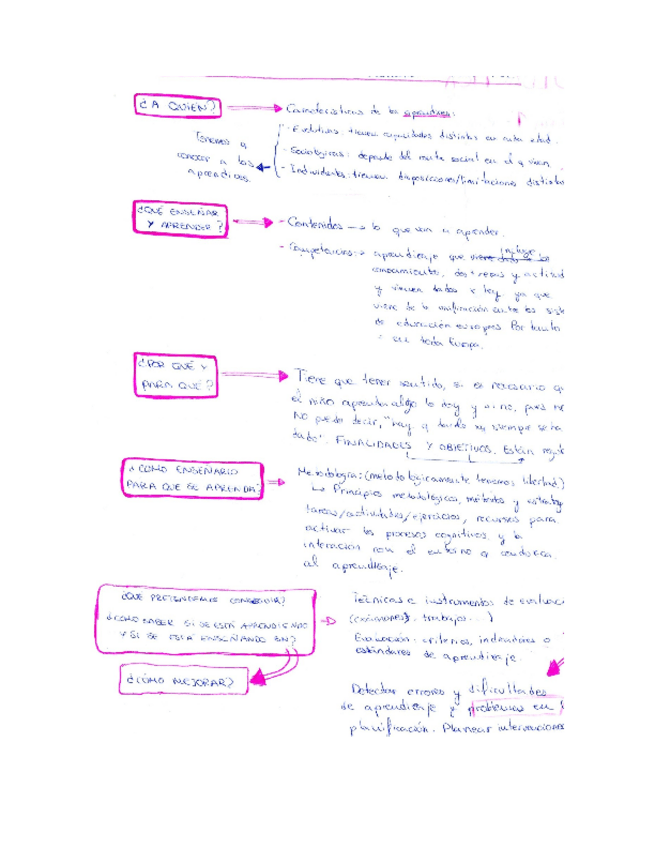 ¿A QUIEN?
Características de los aprendices:
- Evolutivas: tienen capacidades distintas en cada edad.
- Sociológicas: depende del medio social en el q viven.
- Individuales: tienen disposiciones/limitaciones distintas
Tenemos q
conocer a los
aprendices.
¿QUÉ ENSEÑAR
Y APRENDER?
- Contenidos → lo que van a aprender.
- Competencias → aprendizaje que incluye los
conocimiento, destrezas y actitud
y vienen dadas x ley ya que
viene de la unificación entre los sist
de educación europeos. Por tanto
en toda Europa.
¿POR QUÉ Y
PARA QUÉ?
Tiene que tener sentido, si es necesario q
el niño aprenda algo lo doy y si no, pues no
No puedo decir, "hay q darlo xq siempre se ha
dado". FINALIDADES Y OBJETIVOS. Están
¿COMO ENSEÑARLO
PARA QUE SE APRENDA?
Metodología: (metodológicamente tenemos libertad)
↳ Principios metodológicos, métodos y estrateg
tareas/actividades/ejercicios, recursos para
activar los procesos cognitivos y la
interacción con el entorno q conduzca
al aprendizaje.
¿QUE PRETENDEMOS CONSEGUIR?
¿COMO SABER SI SE ESTÁ APRENDIENDO
Y SI SE ESTÁ ENSEÑANDO BIEN?
Técnicas e instrumentos de evaluac
(exámenes, trabajos...)
Evaluación: criterios, indicadores o
estándares de aprendizaje.
¿CÓMO MEJORAR?
Detectar errores y dificultades
de aprendizaje y problemas en
planificación. Planear intervenciones